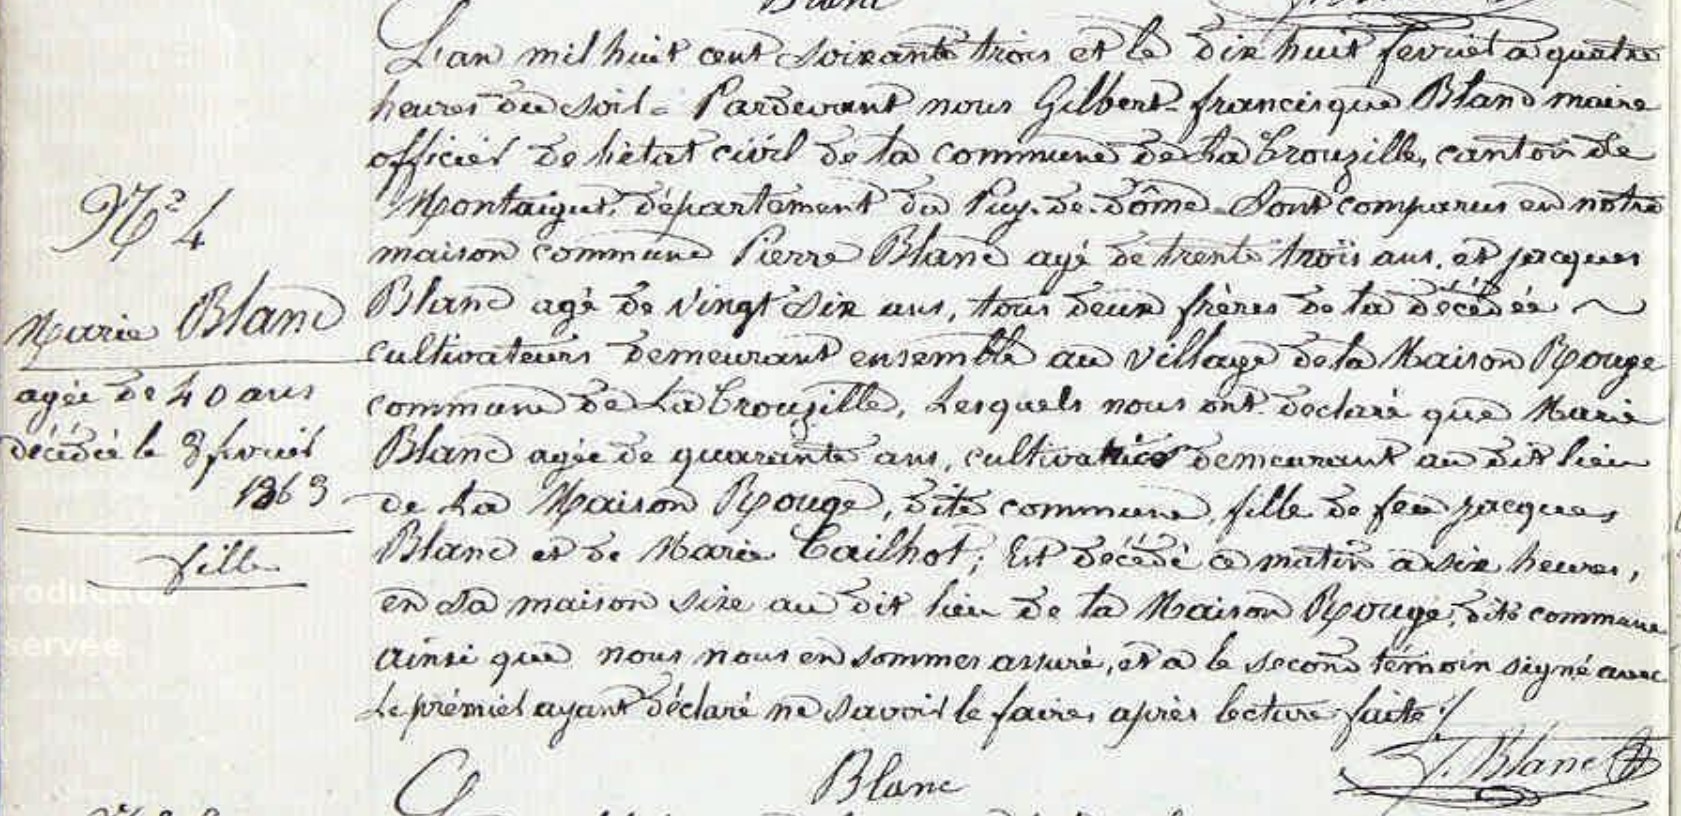 Blanc
L'an mil huit cent soixante trois et le dix huit fevrier a quatre
heures du soir = Pardevant nous Gilbert francisque Blanc maire
officier de l'état civil de la commune de La Crouzille, canton de
Montaigut, département du Puy-de-dôme - Sont comparus en notre
maison commune Pierre Blanc agé de trente trois ans, et jacques
Blanc agé de vingt six ans, tous deux frères de la décédée ~
cultivateurs demeurant ensemble au village de la Maison Rouge
commune de La Crouzille, Lesquels nous ont declaré que Marie
Blanc agée de quarante ans, cultivatrice demeurant au dit lieu
de La Maison Rouge, dite commune, fille de feu jacques
Blanc et de Marie Cailhot; Est décédé ce matin a six heures,
en sa maison size au dit lieu de la Maison Rouge, dite commune
ainsi que nous nous en sommes assuré, et a le second témoin signé avec
Le prémier ayant déclaré ne savoir le faire, après lecture faite ./
Blanc
f. Blanc
N° 4
Marie Blanc
agée de 40 ans
décédée le 8 fevrier
1863
fille
roduction
servée